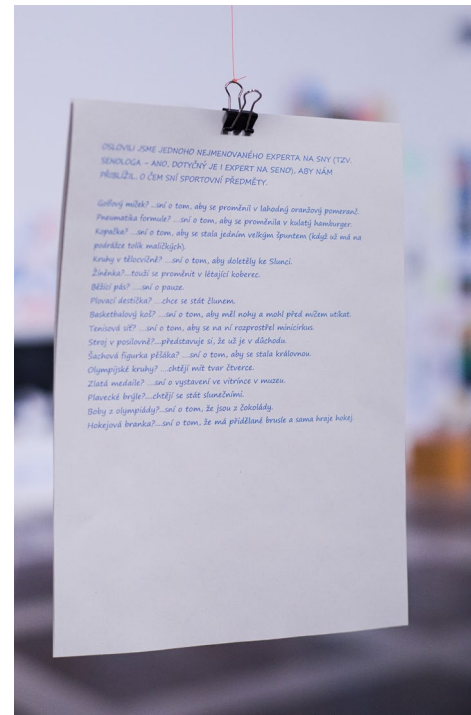 OSLOVILI JSME JEDNOHO NEJMENOVANÉHO EXPERTA NA SNY (TZV.
SENOLOGA – ANO, DOTYČNÝ JE I EXPERT NA SENO), ABY NÁM
PŘIBLÍŽIL, O ČEM SNÍ SPORTOVNÍ PŘEDMĚTY.
Golfový míček? ...sní o tom, aby se proměnil v lahodný oranžový pomeranč.
Pneumatika formule? ...sní o tom, aby se proměnila v kulatý hamburger.
Kopačka? ...sní o tom, aby se stala jedním velkým špuntem (když už má na
podrážce tolik maličkých).
Kruhy v tělocvičně? ...sní o tom, aby doletěly ke Slunci.
Žíněnka?...touží se proměnit v létající koberec.
Běžící pás? ...sní o pauze.
Plovací destička? ...chce se stát člunem.
Basketbalový koš? ...sní o tom, aby měl nohy a mohl před míčem utíkat.
Tenisová síť? ...sní o tom, aby se na ní rozprostřel minicirkus.
Stroj v posilovně?...představuje si, že už je v důchodu.
Šachová figurka pěšáka? ...sní o tom, aby se stala královnou.
Olympijské kruhy? ...chtějí mít tvar čtverce.
Zlatá medaile? ...sní o vystavení ve vitrínce v muzeu.
Plavecké brýle?...chtějí se stát slunečními.
Boby z olympiády?...sní o tom, že jsou z čokolády.
Hokejová branka?...sní o tom, že má přidělané brusle a sama hraje hokej.